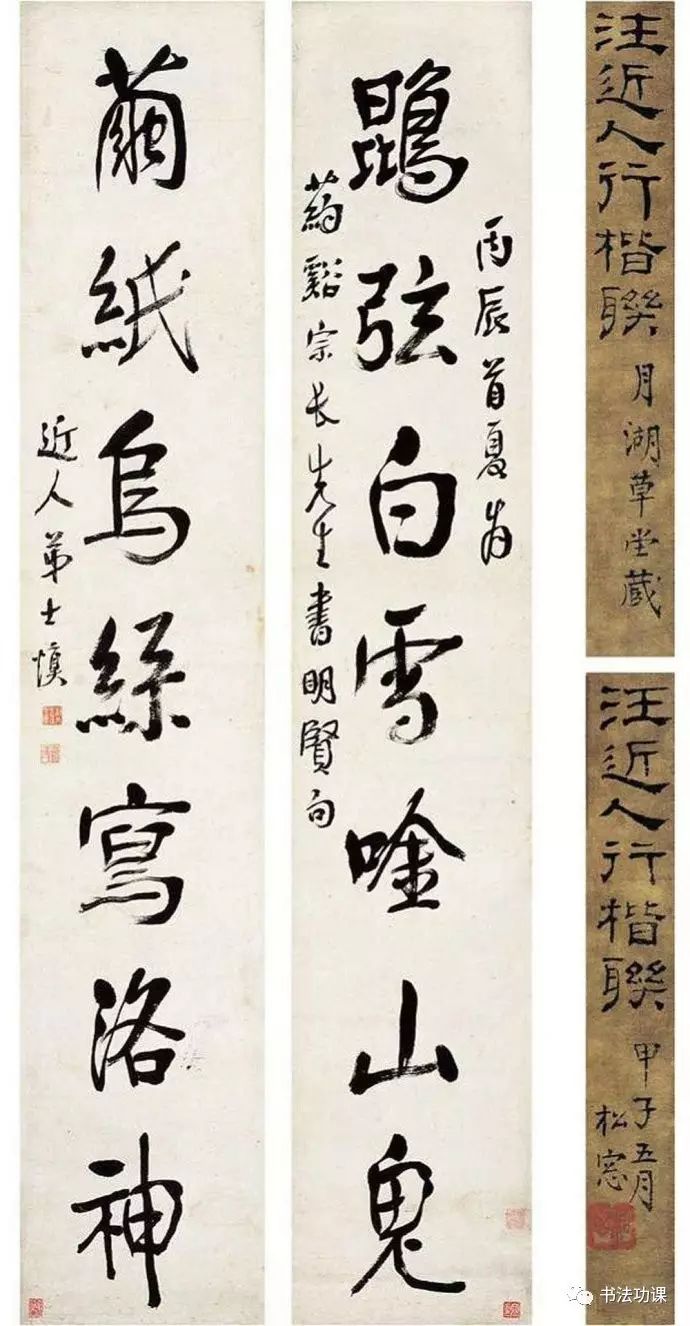 汪近人行楷聯
月湖草堂藏
汪近人行楷聯
甲子五月
松窓
丙辰首夏為
鵾弦白雪唫山鬼
葯谿宗長先生書明賢句
繭紙烏絲寫洛神
近人弟士慎
书法功课